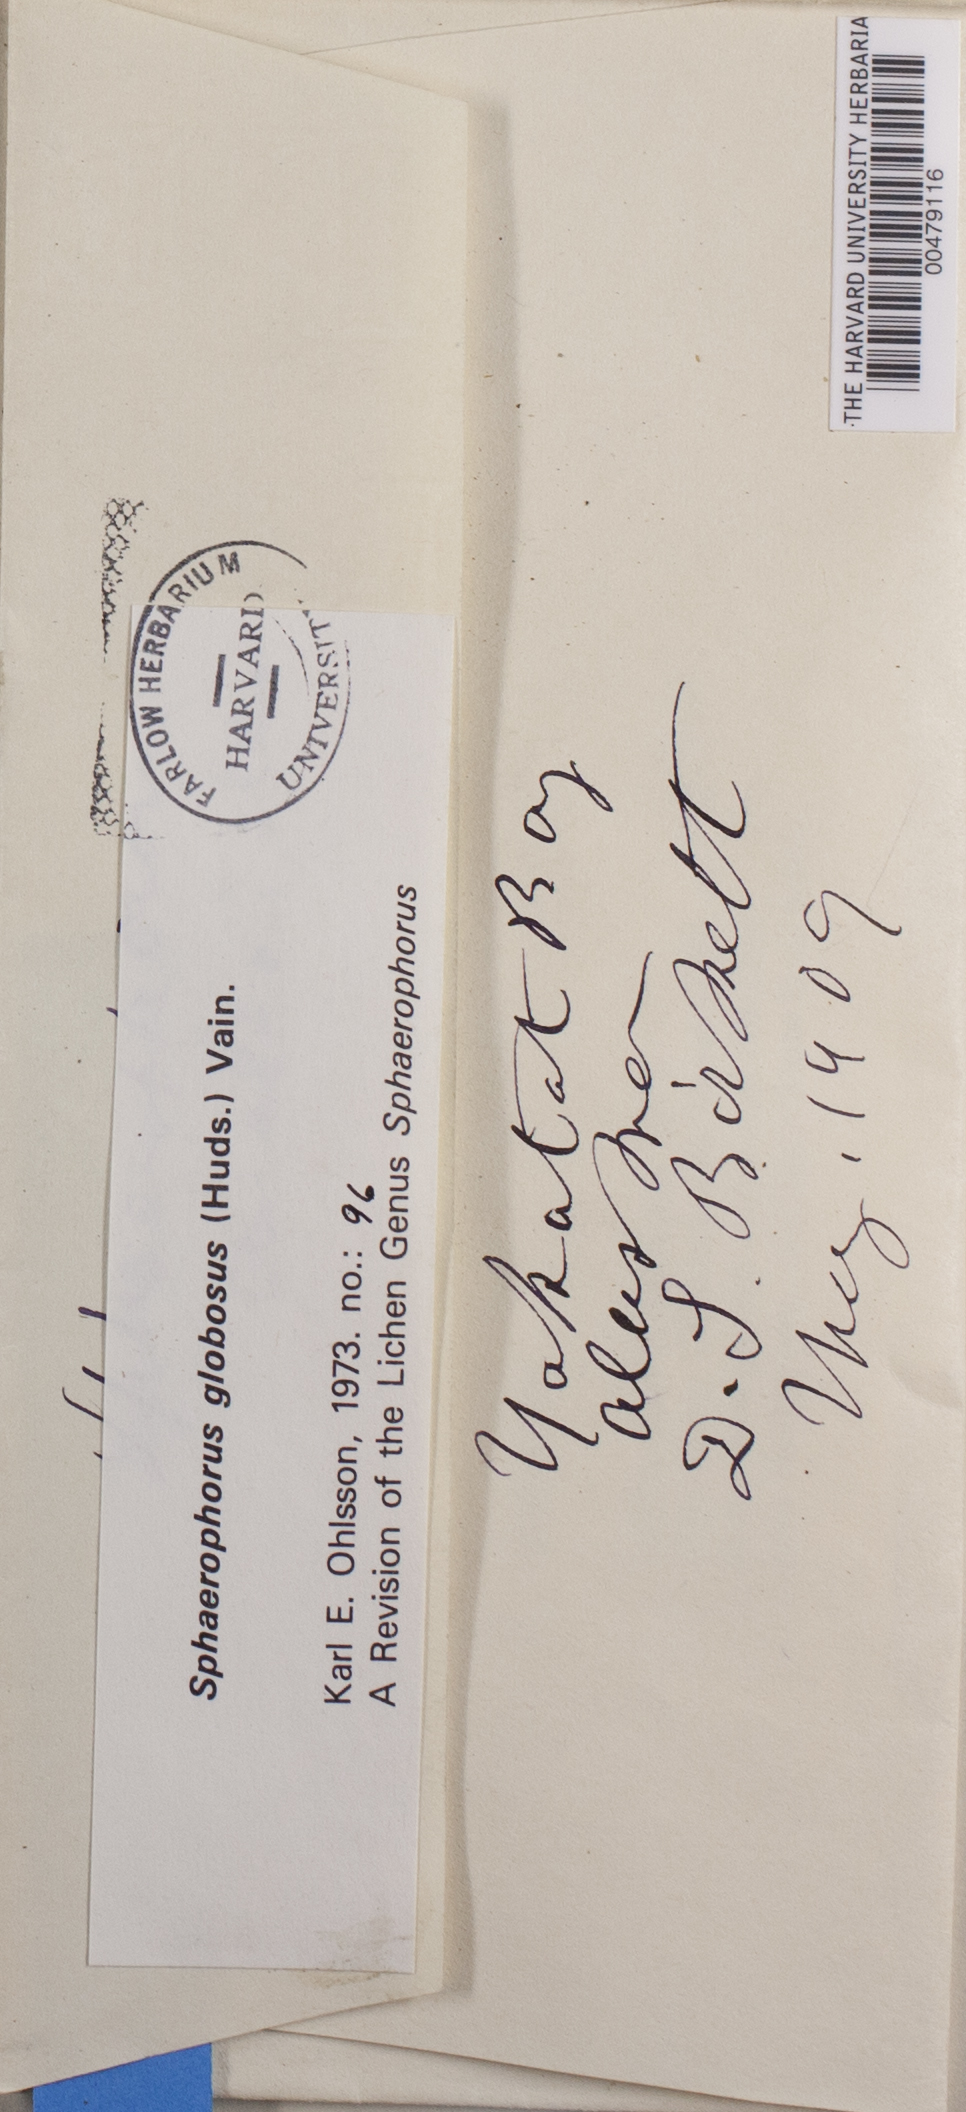 Sphaerophorus globosus (Huds.) Vain.
Karl E. Ohlsson, 1973. no.: 96
A Revision of the Lichen Genus Sphaerophorus
FARLOW HERBARIUM
HARVARD
UNIVERSIT
Yakatat Bay
Alaska
D. S. Birkett
1909
THE HARVARD UNIVERSITY HERBARIA
00479116